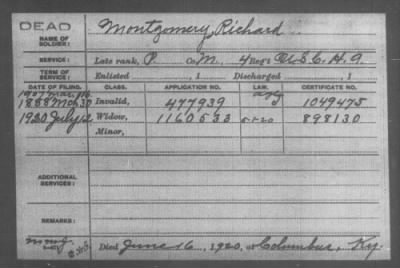 DEAD
NAME OF SOLDIER:
Montgomery, Richard
SERVICE:
Late rank, P. Co. M., 4 Reg't U.S.C.H.A.
TERM OF SERVICE:
Enlisted , 1 Discharged , 1
DATE OF FILING. CLASS. APPLICATION NO. LAW. CERTIFICATE NO.
1907 Mar.
1888 Mch 30 Invalid, 477939 1049475
1920 July 12 Widow, 1160533 898130
Minor,
ADDITIONAL SERVICES:
REMARKS:
Died June 16, 1920, at Columbus, Ky.